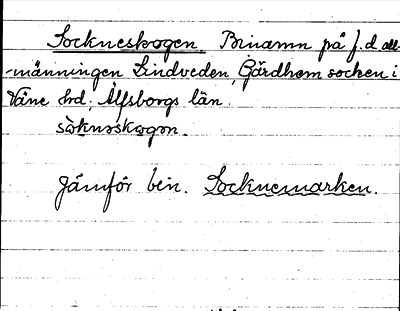 Sockneskogen Binamn på f.d. all-
männingen Lindveden, Gärdhem socken i
Väne hd, Älfsborgs län.
sòknəskωgən.
Jämför bin. Socknemarken.